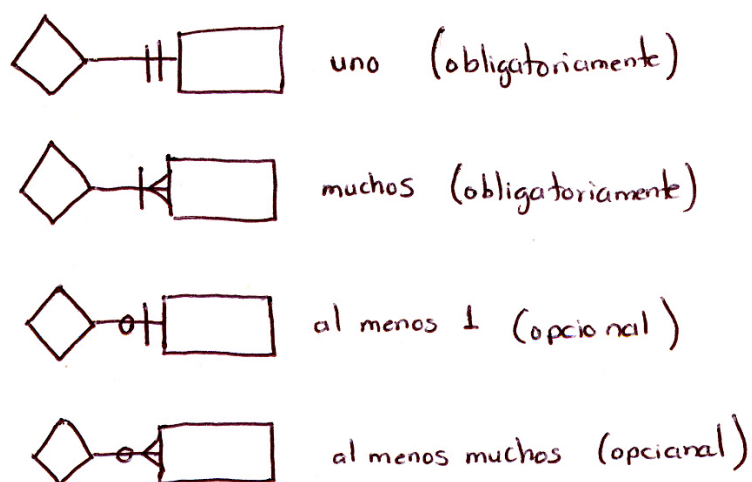 uno (obligatoriamente)
muchos (obligatoriamente)
al menos 1 (opcional)
al menos muchos (opcianal)